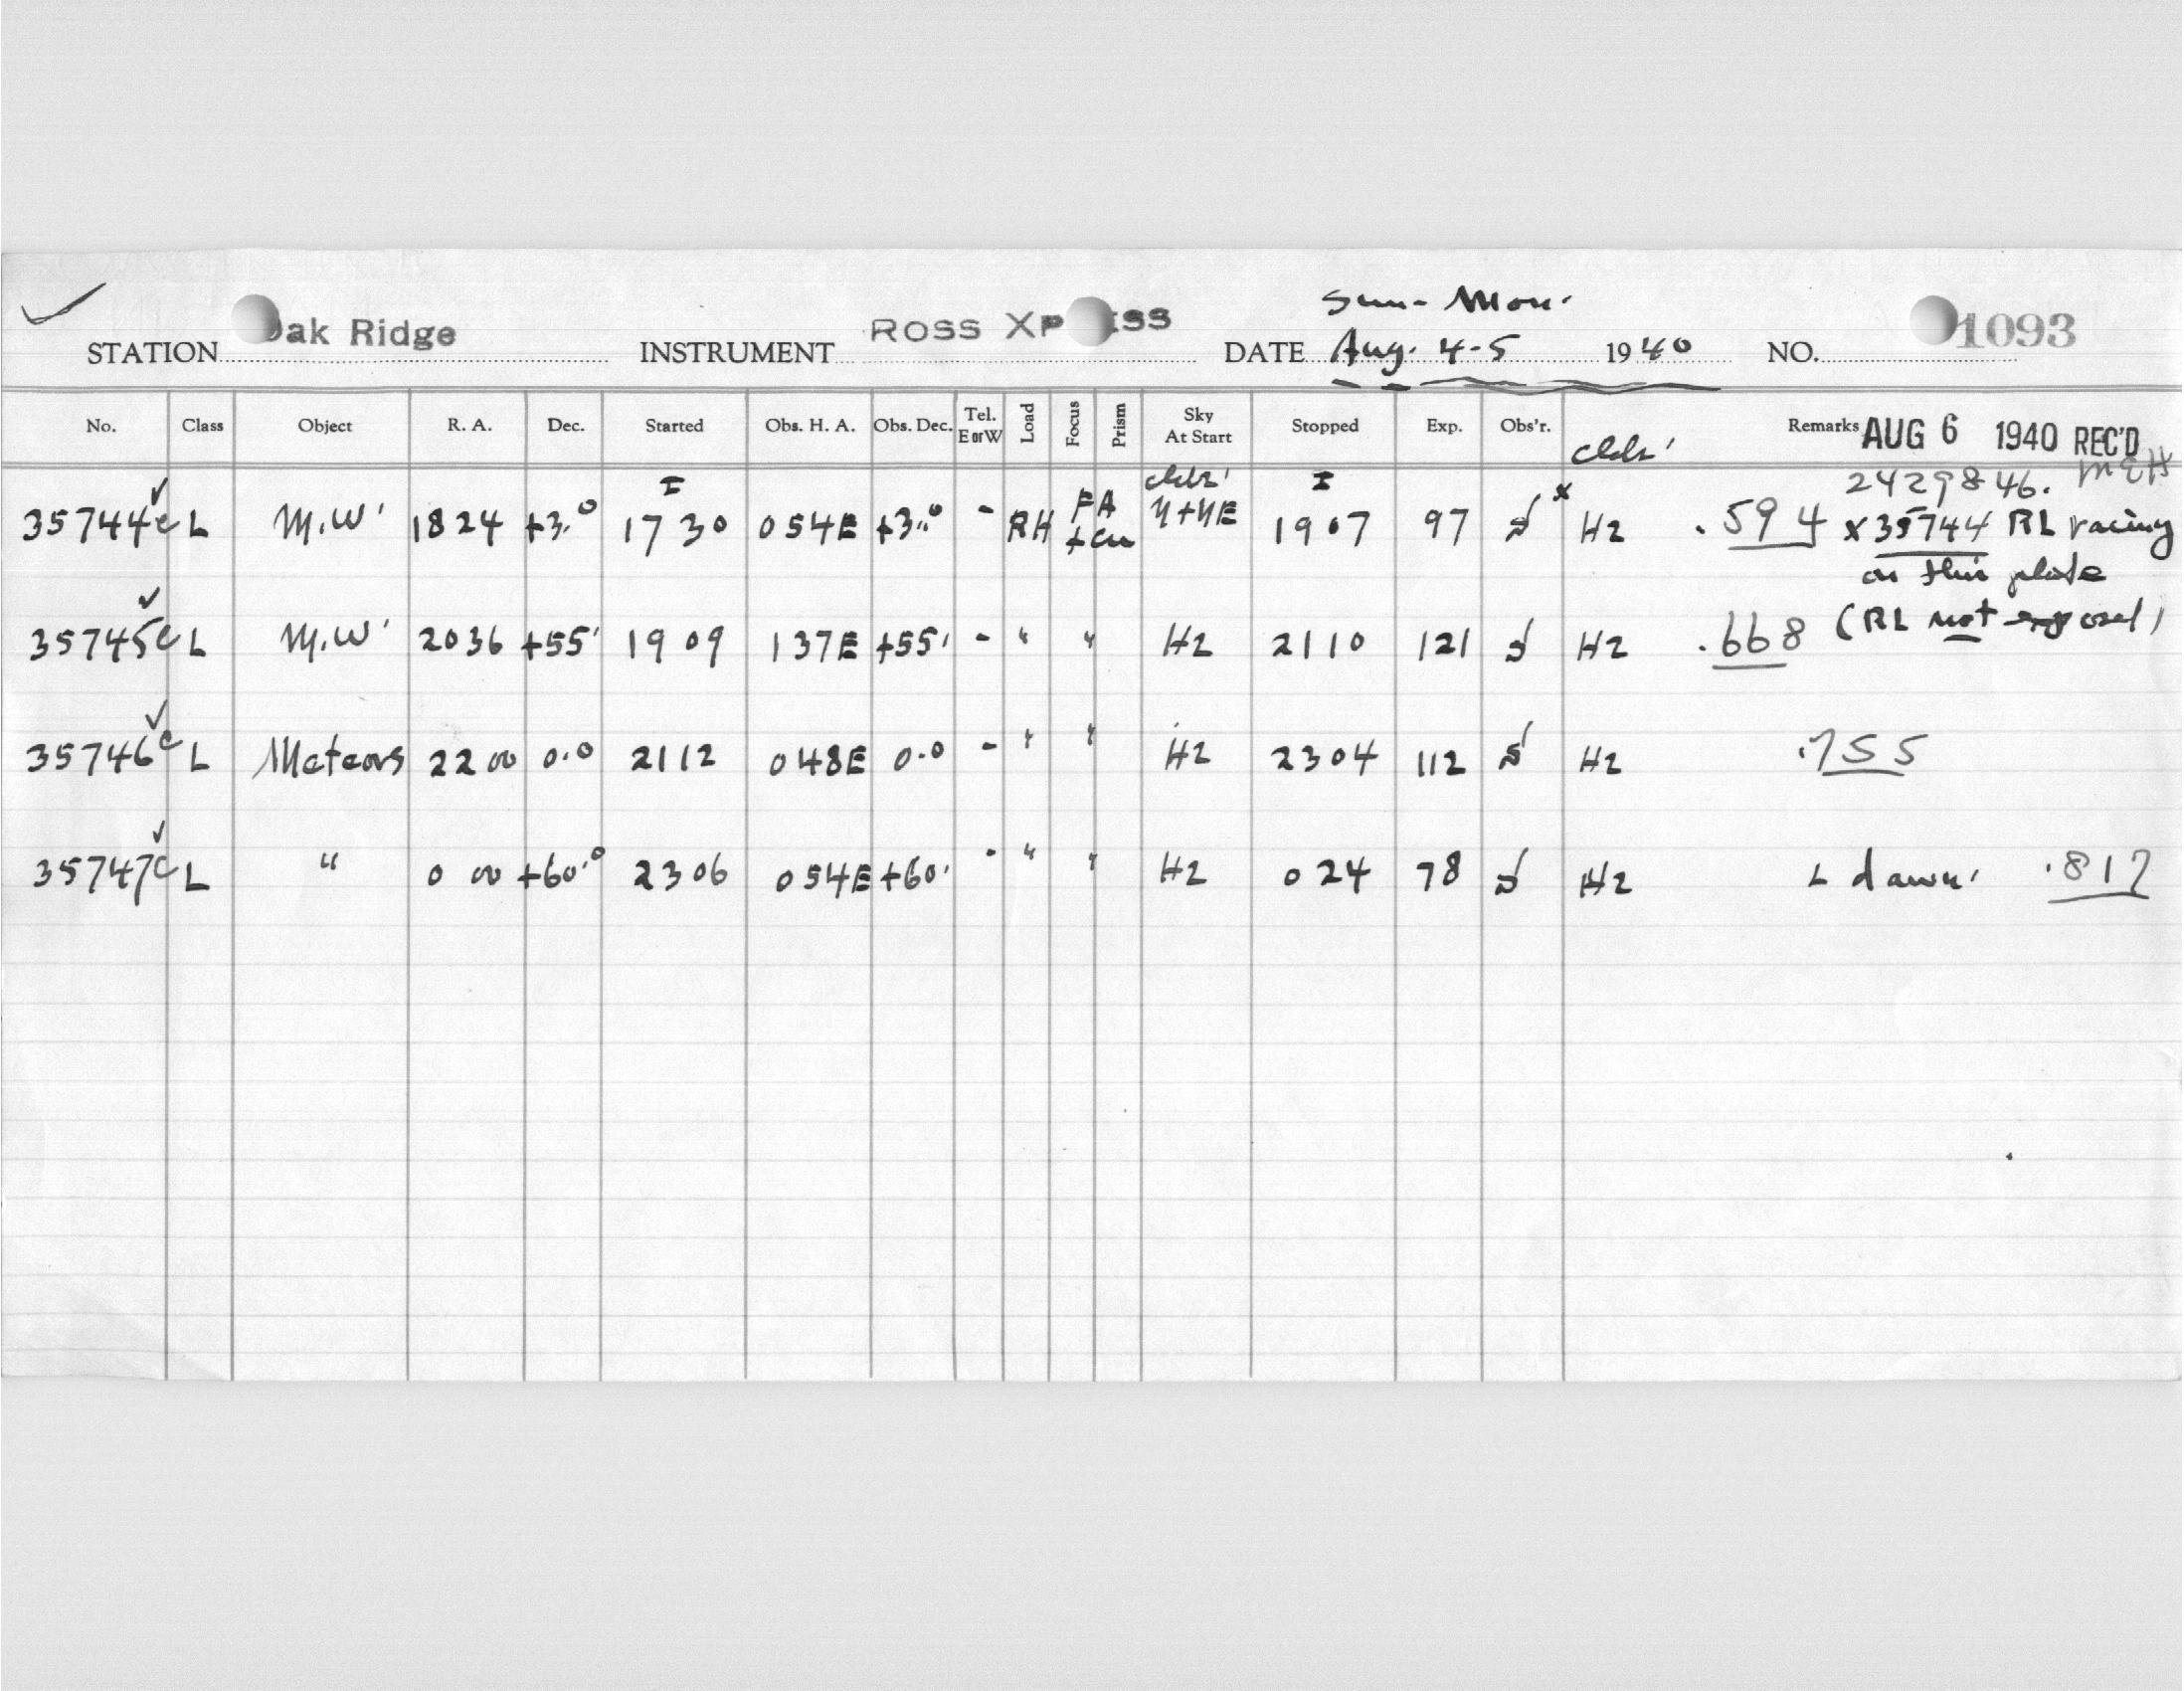 Sun - Mon.
STATION Oak Ridge INSTRUMENT ROSS XPRESS DATE Aug. 4-5 1940 NO. 1093
No. Class Object R. A. Dec. Started Obs. H. A. Obs. Dec. Tel. E or W Load Focus Prism Sky At Start Stopped Exp. Obs'r. Remarks AUG 6 1940 REC'D
2429846. MEH
35744c L M.W. 1824 +3.0 1730 054E +3.0 - RH FA N+NE 1907 97 x Hz .594 x 35744 RL racing
on this plate
35745c L M.W. 2036 +55. 1909 137E +55. - " " Hz 2110 121 Hz .668 (RL not exposed)
35746c L Meteors 22 00 0.0 2112 048E 0.0 - " " Hz 2304 112 Hz .755
35747c L " 0 00 +60.0 2306 054E +60. - " " Hz 024 78 Hz L dawn. .817